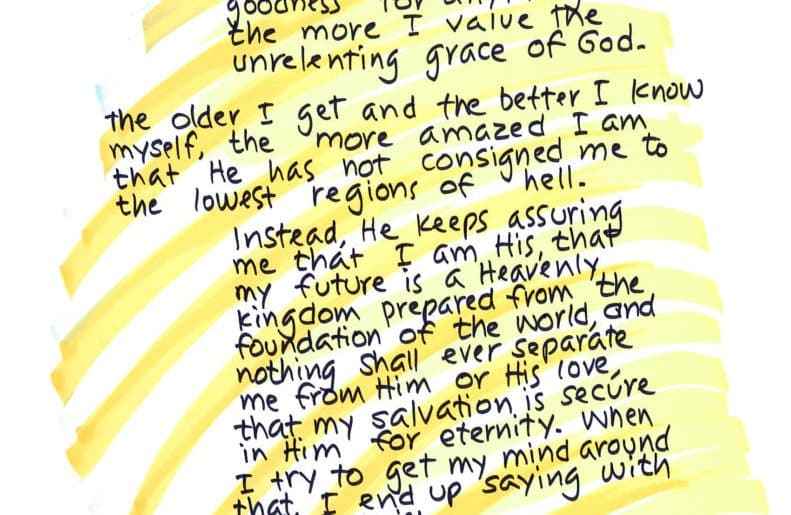 goodness for
the more I value the
unrelenting grace of God.
the older I get and the better I know
myself, the more amazed I am
that He has not consigned me to
the lowest regions of hell.
Instead, He keeps assuring
me that I am His, that
my future is a Heavenly
kingdom prepared from the
foundation of the world, and
nothing shall ever separate
me from Him or His love,
that my salvation is secure
in Him for eternity. When
I try to get my mind around
that, I end up saying with